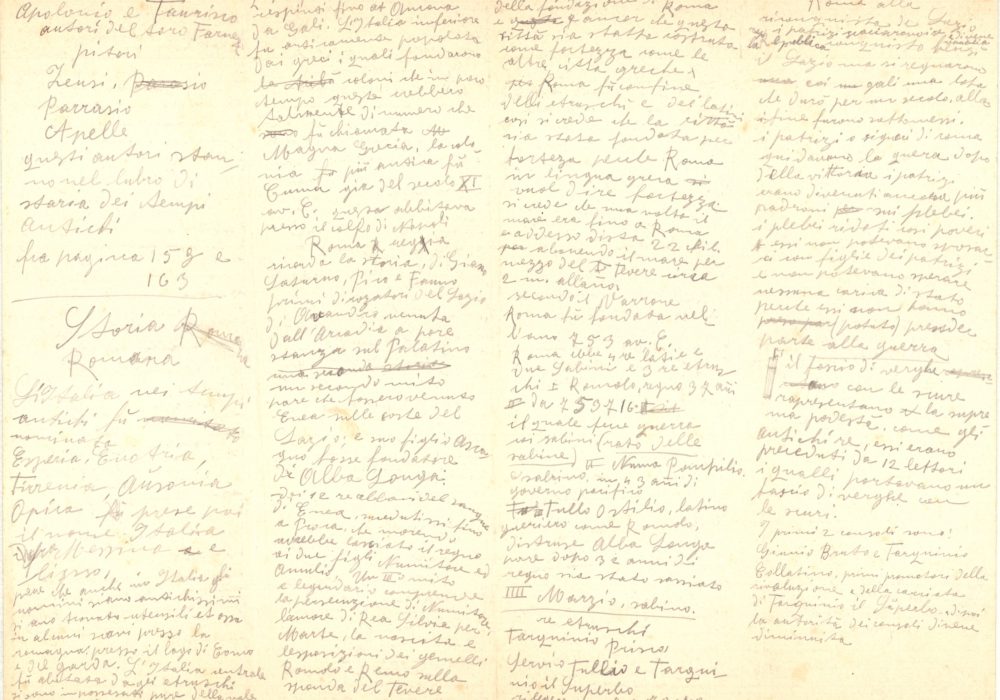 Apolonio e Taurisco
autori del toro Farnes
pitori
Zeusi,
Parrasio
Apelle
questi autori stan
no nel lubro di
staria dei tempi
antichi
fra pagina 158 e
163
Storia Roma
Romana
L'Italia nei tempi
antichi fù
nominata
Esperia, Enotria
Tirrenia, Ausonia
Opica prese poi
il nome Italia
Messina e
pare che anche in Italia
uomini siano antichissimi
si sono trovati utensili et ossa
in alcuni scavi presso la
romagna, presso il lago di Como
e del garda. L'Italia centrale
fù abitata dagli etruschi
respinti fino at Ancona
da Gali. L'Italia inferiore
fu anticamente popolata
dai greci i quali fondarono
colonie che in poco
tempo queste crebbero
talmente di numero che
fù chiamata
Magna Grecia, la colo
nia più antica fù
Cuma già del secolo XI
av. C. questa abbitava
presso il golfo di Napoli
Roma reggia
ricorda la storia, di Giano
Saturno, Pico e Fauno
primi dirozatori del Lazio
di Evandro venuto
dall'Arcadia a pore
stanza sul Palatino
una seconda storia
un secondo mito
pare che fossero venuto
Enea sulle coste del
Lazio, e suo figlio Asca
gno fosse fondatore
di Alba Longa.
Di 12 re albani del sangue
di Enea, seduti si fino
a Proca, che morendo
avrebbe lasciato il regno
ai due figli Numitore ed
Amulio. Un III mito
e legendario comprende
la persecuzione di Numitore
l'amore di Rea Silvia per
Marte, la nascita e
l'esposizioni dei gemelli
Romolo e Remo sulla
sponda del Tevere
della fondazione di Roma
e ancor che questa
città sia statta costruita
come fortezza come le
altre città greche.
Roma fù confine
delli etruschi e dei latini
cosi si crede che la città
sia stata fondata per
fortezza perche Roma
in lingua greca
vuol dire fortezza
si crede che una volta il
mare era fino a Roma
e addesso dista 22 chil.
alzando il mare per
mezzo del Tevere circa
2 m. allano.
secondo il Varrone
Roma fù fondata nel
l'ano 753 av. C.
Roma ebbe 4 re latini e
due Sabini e 3 re etrus
chi I Romolo, regno 37 ani
da 753 716
il quale fece guerra
coi sabini (rato delle
sabine) II Numa Pompilio
sabino, in 43 ani di
governo pacifico
Tullo Ostilio, latino
guerriero come Romolo,
distruse Alba Longa
pare dopo 32 anni di
regno sia stato
IIII Marzio, sabino.
re etruschi
Tarquinio Prisco
Servio Tullio e Tarqui
nio il Superbo.
Roma alla
riconquista del Lazio
i patrizi
republica
il Lazio ma si regnarono
coi gali una lota
che durò per un secolo, alla
fine furono sottomessi.
i patrizi o signori di roma
guidavano la guera dopo
della vittoria i patrizi
erano diventi ancora più
padroni sui plebei.
i plebei ridoti cosi poveri
essi non potevano sposar
si con figlie dei patrizi
e non potevano sperare
nessuna carica di stato
perche essi non hanno
(potuto) prendere
parte alla guerra
il fascio di verghe
con le scure
rapresentano la supre
ma podestà, come gli
antichi re, essi erano
preceduti da 12 lettori
i quali portavano un
fascio di verghe con
le scuri.
I primi 2 consoli sono:
Giunio Bruto e Tarquinio
Collatino, primi promotori della
rivoluzione e della cacciata
di Tarquinio il Superbo. di poi
la autorità dei consoli divene
diminuita